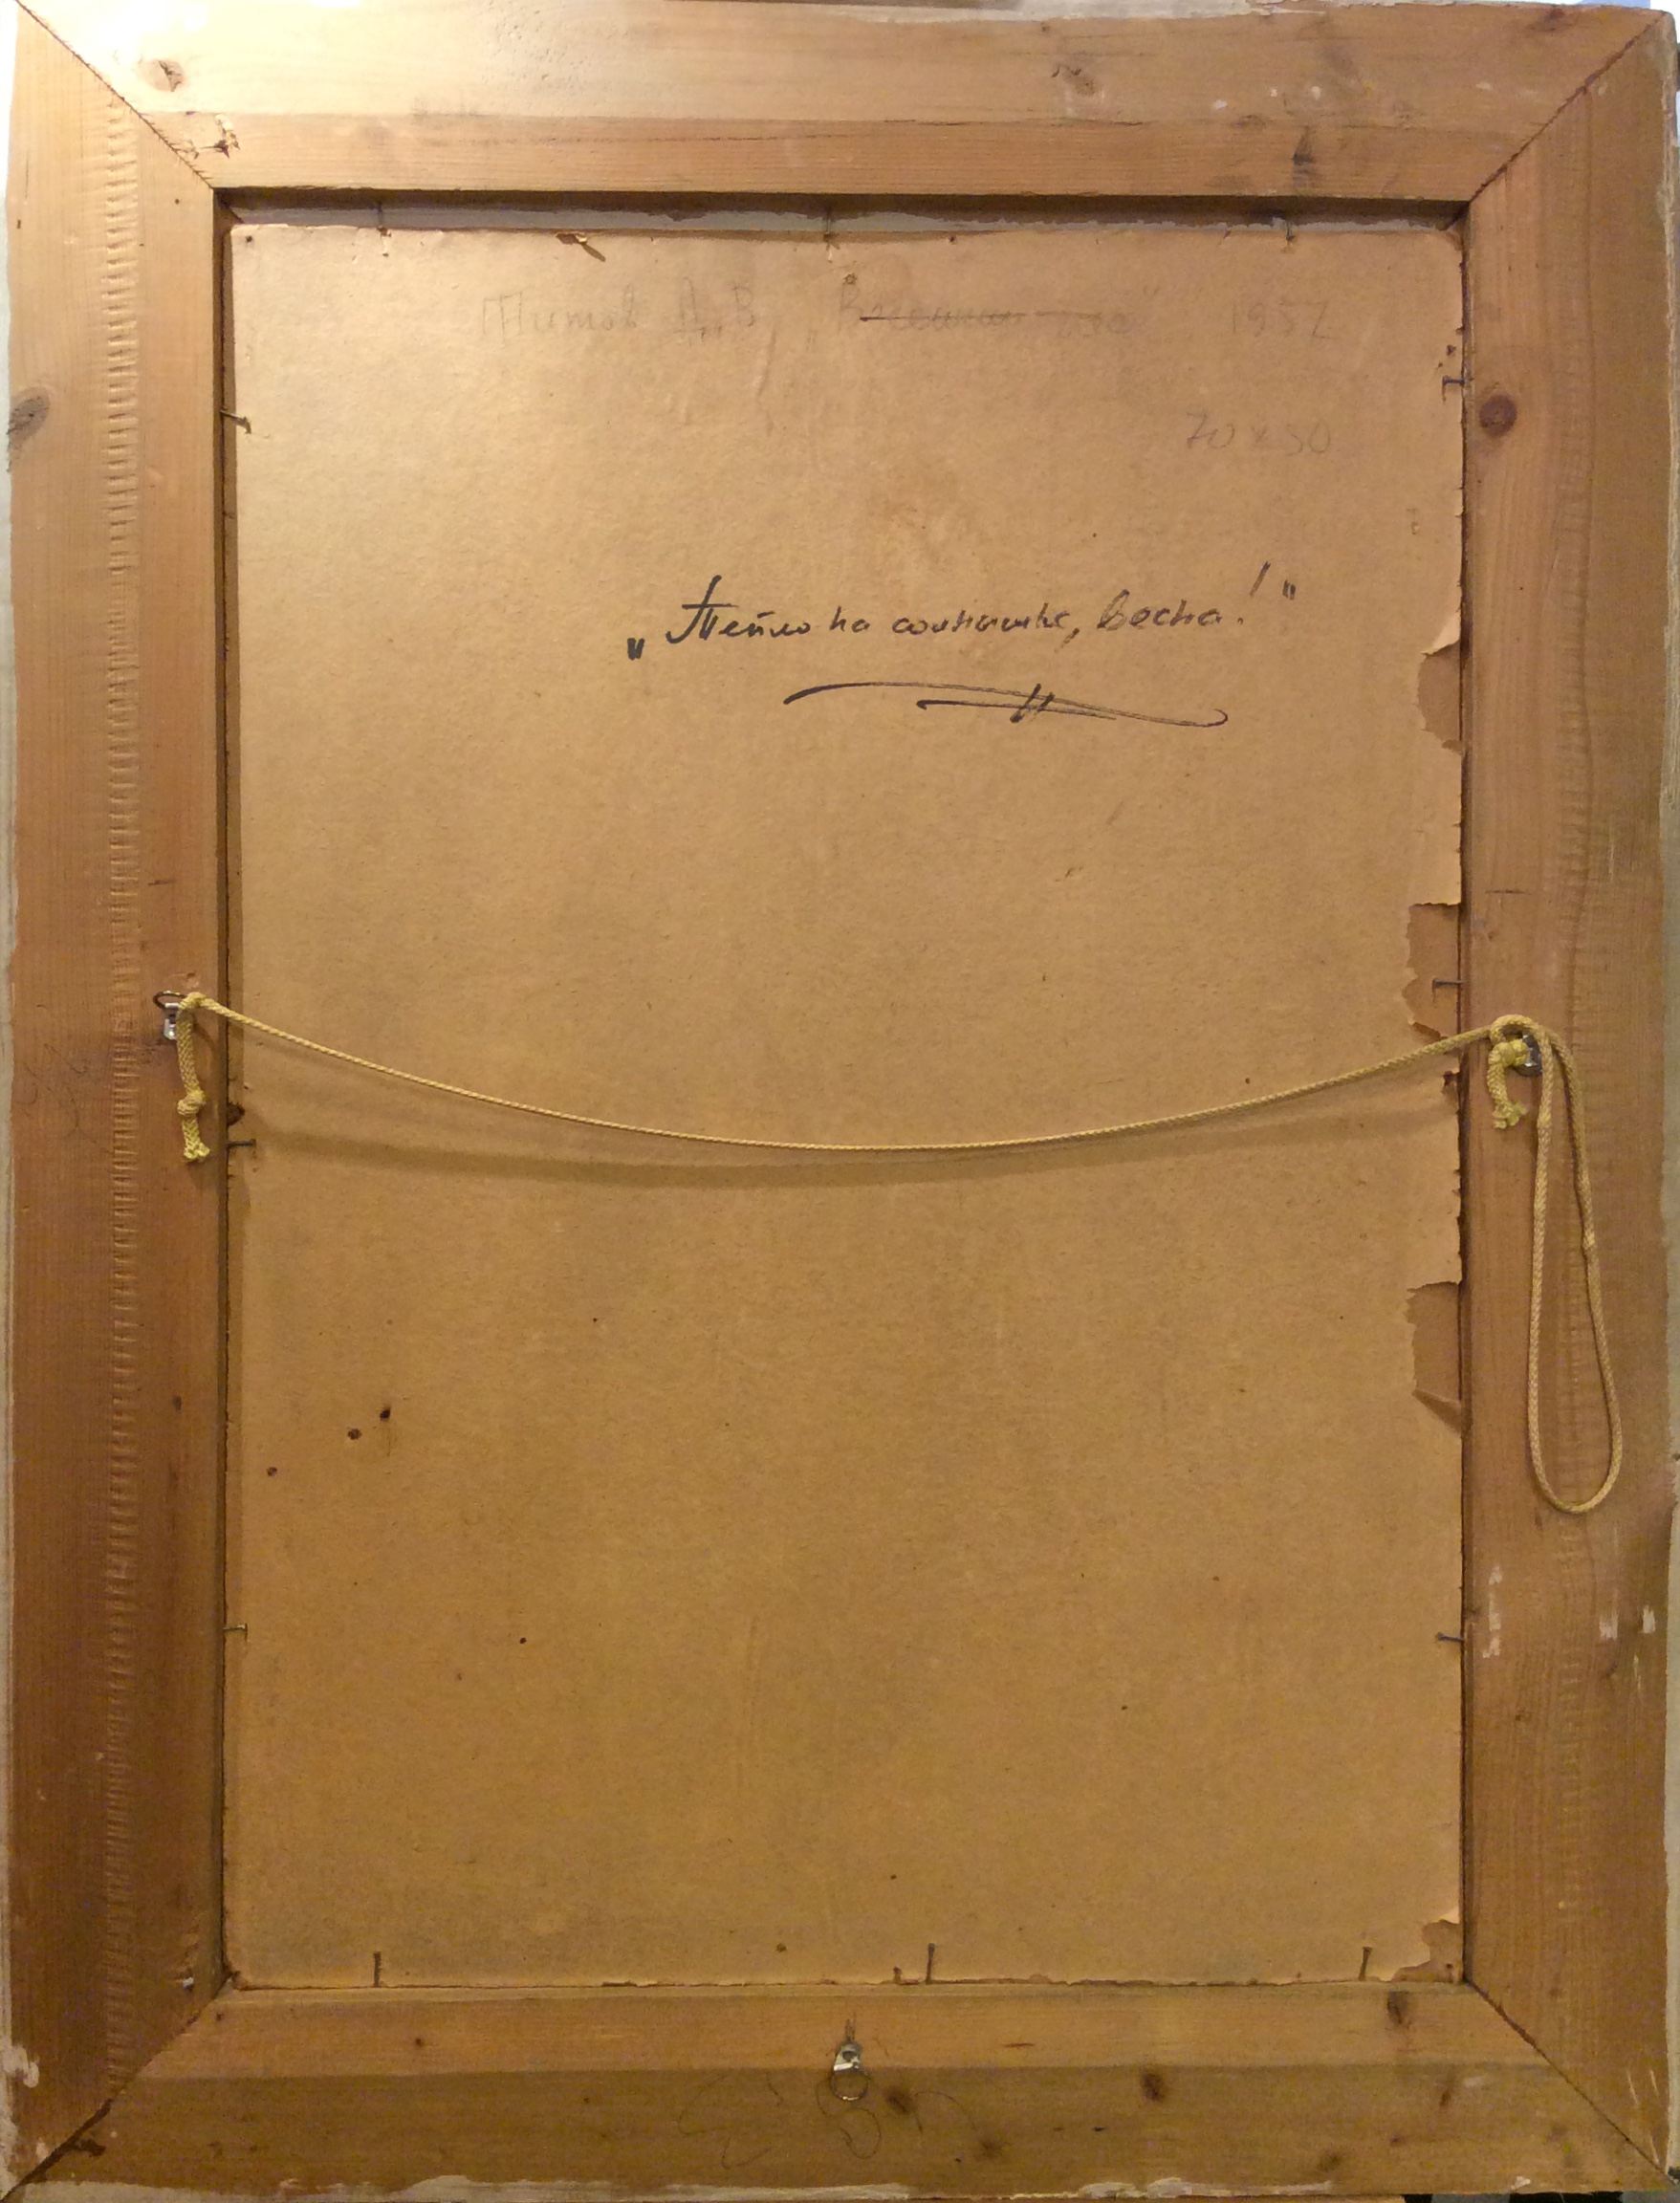 Титов Д. В. 1957
70 x 50
„Тепло на солнышке, весна!"